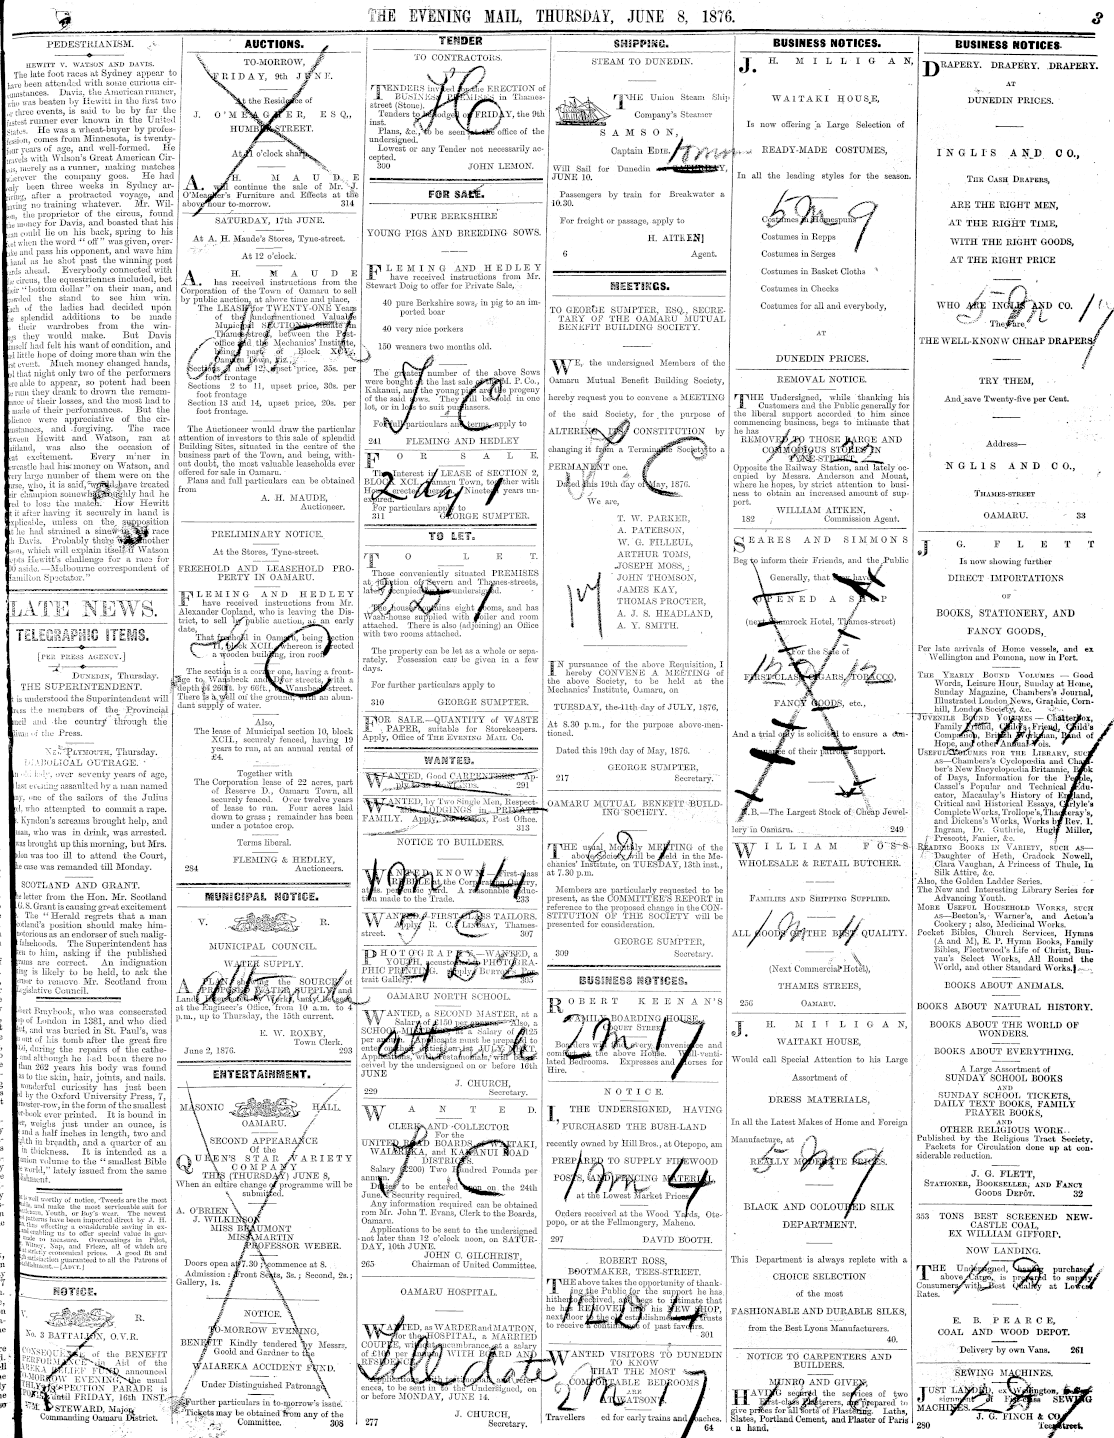 THE EVENING MAIL, THURSDAY, JUNE 8, 1876.
3
PEDESTRIANISM.
HEWITT V. WATSON AND DAVIS.
The late foot races at Sydney appear to
have been attended with some curious cir-
cumstances. Davis, the American runner,
who was beaten by Hewitt in the first two
or three events, is said to be by far the
fastest runner ever known in the United
States. He was a wheat-buyer by profes-
sion, comes from Minnesota, is twenty-
four years of age, and well-formed. He
travels with Wilson's Great American Cir-
cus, merely as a runner, making matches
wherever the company goes. He had
only been three weeks in Sydney ar-
riving, after a protracted voyage, and
having no training whatever. Mr. Wil-
son, the proprietor of the circus, found
the money for Davis, and boasted that his
man could lie on his back, spring to his
feet when the word "off" was given, over-
take and pass his opponent, and wave him
hand as he shot past the winning post
yards ahead. Everybody connected with
the circus, the equestriennes included, bet
their "bottom dollar" on their man, and
crowded the stand to see him win.
Each of the ladies had decided upon
splendid additions to be made
their wardrobes from the win-
nings they would make. But Davis
himself had felt his want of condition, and
had little hope of doing more than win the
first event. Much money changed hands,
and that night only two of the performers
were able to appear, so potent had been
the rum they drank to drown the remem-
brance of their losses, and the most had to
made of their performances. But the
audience were appreciative of the cir-
cumstances, and forgiving. The race
between Hewitt and Watson, ran at
Maitland, was also the occasion of
great excitement. Every miner in
Newcastle had his money on Watson, and
very large number of them were on the
course, who, it is said, would have treated
their champion somewhat roughly had he
dared to lose the match. How Hewitt
lost it after having it securely in hand is
inexplicable, unless on the supposition
that he had strained a sinew in his race
with Davis. Probably there is another
reason, which will explain itself if Watson
accepts Hewitt's challenge for a race for
aside.—Melbourne correspondent of
"Hamilton Spectator."
LATE NEWS.
TELEGRAPHIC ITEMS.
[PER PRESS AGENCY.]
DUNEDIN, Thursday.
THE SUPERINTENDENT.
It is understood the Superintendent will
address the members of the Provincial
Council and the country through the
columns of the Press.
NEW PLYMOUTH, Thursday.
DIABOLICAL OUTRAGE.
An old lady, over seventy years of age,
last evening assaulted by a man named
one of the sailors of the Julius
who attempted to commit a rape.
Kyndon's screams brought help, and
man, who was in drink, was arrested.
was brought up this morning, but Mrs.
was too ill to attend the Court,
the case was remanded till Monday.
SCOTLAND AND GRANT.
The letter from the Hon. Mr. Scotland
G.S. Grant is causing great excitement
The "Herald regrets that a man
Scotland's position should make him-
notorious as an endorser of such malig-
falsehoods. The Superintendent has
to him, asking if the published
are correct. An indignation
is likely to be held, to ask the
to remove Mr. Scotland from
Legislative Council.
Robert Braybook, who was consecrated
of London in 1381, and who died
and was buried in St. Paul's, was
out of his tomb after the great fire
during the repairs of the cathe-
and although he had been there no
than 262 years his body was found
as to the skin, hair, joints, and nails.
wonderful curiosity has just been
by the Oxford University Press, 7,
in the form of the smallest
book ever printed. It is bound in
weighs just under an ounce, is
and a half inches in length, two and
in breadth, and a quarter of an
in thickness. It is intended as a
volume to the "smallest Bible
world," lately issued from the same
NOTICE.
V. R.
No. 3 BATTALION, O.V.R.
CONSEQUENCE of the BENEFIT
PERFORMANCE in Aid of the
RELIEF FUND, announced
TO-MORROW EVENING, the usual
INSPECTION PARADE is
until FRIDAY, 16th INST.
STEWARD, Major,
Commanding Oamaru District.
AUCTIONS.
TO-MORROW,
FRIDAY, 9th JUNE.
At the Residence of
J. O'MEAGHER, ESQ.,
HUMBER-STREET.
At 11 o'clock sharp.
A. H. MAUDE
will continue the sale of Mr. J.
O'Meagher's Furniture and Effects at the
above hour to-morrow. 314
SATURDAY, 17th JUNE.
At A. H. Maude's Stores, Tyne-street.
At 12 o'clock.
A. H. MAUDE
has received instructions from the
Corporation of the Town of Oamaru to sell
by public auction, at above time and place,
The LEASE for TWENTY-ONE Years
of the undermentioned Valuable
Municipal SECTIONS, situate in
Thames-street between the Post-
office and the Mechanics' Institute,
being part of Block XCV.,
Oamaru Town, viz.,
Sections 1 and 12, upset price, 35s. per
foot frontage
Sections 2 to 11, upset price, 30s. per
foot frontage
Section 13 and 14, upset price, 20s. per
foot frontage.
The Auctioneer would draw the particular
attention of investors to this sale of splendid
Building Sites, situated in the centre of the
business part of the Town, and being, with-
out doubt, the most valuable leaseholds ever
offered for sale in Oamaru.
Plans and full particulars can be obtained
from
A. H. MAUDE,
Auctioneer.
PRELIMINARY NOTICE.
At the Stores, Tyne-street.
FREEHOLD AND LEASEHOLD PRO-
PERTY IN OAMARU.
FLEMING AND HEDLEY
have received instructions from Mr.
Alexander Copland, who is leaving the Dis-
trict, to sell by public auction, at an early
date,
That freehold in Oamaru, being section
11, block XCII., whereon is erected
a wooden building, iron roof.
The section is a corner one, having a front-
age to Wansbeck and Severn streets, with a
depth of 260ft. by 66ft. to Wansbeck-street.
There is a well on the ground, with an abun-
dant supply of water.
Also,
The lease of Municipal section 10, block
XCII., securely fenced, having 19
years to run, at an annual rental of
£4.
Together with
The Corporation lease of 22 acres, part
of Reserve D., Oamaru Town, all
securely fenced. Over twelve years
of lease to run. Over 20 acres laid
down to grass; remainder has been
under a potatoe crop.
Terms liberal.
FLEMING & HEDLEY,
284 Auctioneers.
MUNICIPAL NOTICE.
V. R.
MUNICIPAL COUNCIL.
WATER SUPPLY.
A PLAN showing the SOURCE of
PROPOSED WATER SUPPLY and
at the Engineer's Office, from 10 a.m. to 4
p.m., up to Thursday, the 15th current.
E. W. ROXBY,
Town Clerk.
June 2, 1876. 293
ENTERTAINMENT.
MASONIC HALL.
OAMARU.
SECOND APPEARANCE
Of the
QUEEN'S STAR VARIETY
COMPANY
THIS (THURSDAY) JUNE 8,
When an entire change of programme will be
submitted.
A. O'BRIEN
J. WILKINSON
MISS BEAUMONT
MISS MARTIN
PROFESSOR WEBER.
Doors open at 7.30; commence at 8.
Admission: Front Seats, 3s.; Second, 2s.;
Gallery, 1s.
NOTICE.
TO-MORROW EVENING,
BENEFIT Kindly tendered by Messrs.
Goold and Gardner to the
WAIAREKA ACCIDENT FUND.
Under Distinguished Patronage.
Further particulars in to-morrow's issue.
Tickets may be obtained from any of the
Committee. 308
TENDER
TO CONTRACTORS.
TENDERS invited for the ERECTION of
BUSINESS PREMISES in Thames-
street (Stone).
Tenders to be lodged on FRIDAY, the 9th
inst.
Plans, &c., to be seen at the office of the
undersigned.
Lowest or any Tender not necessarily ac-
cepted.
300 JOHN LEMON.
FOR SALE.
PURE BERKSHIRE
YOUNG PIGS AND BREEDING SOWS.
FLEMING AND HEDLEY
have received instructions from Mr.
Stewart Doig to offer for Private Sale,
40 pure Berkshire sows, in pig to an im-
ported boar
40 very nice porkers
150 weaners two months old.
The greater number of the above Sows
were bought at the last sale of the M. P. Co.,
Kakanui, and the young pigs are the progeny
of the said sows. They will be sold in one
lot, or in lots to suit purchasers.
For full particulars and terms, apply to
241 FLEMING AND HEDLEY
FOR SALE.
Interest in LEASE of SECTION 2,
BLOCK XCI., Oamaru Town, together with
House erected thereon. Nineteen years un-
expired.
For particulars apply to
311 GEORGE SUMPTER.
TO LET.
TO LET.
Those conveniently situated PREMISES
at junction of Severn and Thames-streets,
lately occupied by the undersigned.
The house contains eight rooms, and has
Wash-house supplied with boiler and room
attached. There is also (adjoining) an Office
with two rooms attached.
The property can be let as a whole or sepa-
rately. Possession can be given in a few
days.
For further particulars apply to
310 GEORGE SUMPTER.
FOR SALE.—QUANTITY of WASTE
PAPER, suitable for Storekeepers.
Apply, Office of THE EVENING MAIL Co.
WANTED.
WANTED, Good CARPENTERS. Ap-
ply to 291
WANTED, by Two Single Men, Respect-
able LODGINGS in PRIVATE
FAMILY. Apply, Post Office.
313
NOTICE TO BUILDERS.
WANTED KNOWN, First-class
RUBBLE at the Corporation Quarry,
A reasonable reduc-
tion made to the Trade. 233
WANTED, FIRST-CLASS TAILORS.
Apply, R. C. Lindsay, Thames-
street. 307
PHOTOGRAPHY.—WANTED, a
YOUTH, accustomed to PHOTOGRA-
PHIC PRINTING.
Portrait Gallery. 305
OAMARU NORTH SCHOOL.
WANTED, a SECOND MASTER, at a
Salary of £150 per annum. Also, a
ceived by the undersigned on or before 16th
JUNE
J. CHURCH,
229 Secretary.
WANTED.
CLERK AND COLLECTOR
For the
UNITED ROAD BOARDS—WAITAKI,
WAIAREKA, and KAKANUI ROAD
DISTRICTS.
Salary (£200) Two Hundred Pounds per
annum.
Duties to be entered upon on the 24th
June. Security required.
Any information required can be obtained
from Mr. John T. Evans, Clerk to the Boards,
Oamaru.
Applications to be sent to the undersigned
not later than 12 o'clock noon, on SATUR-
DAY, 10th JUNE.
JOHN C. GILCHRIST,
265 Chairman of United Committee.
OAMARU HOSPITAL.
WANTED, as WARDER and MATRON,
for the HOSPITAL, a MARRIED
COUPLE, without encumbrance, at a salary
of £100 per annum, WITH BOARD AND
RESIDENCE.
Applications, with testimonials and refer-
ences, to be sent in to the Undersigned, on
or before MONDAY, JUNE 14.
J. CHURCH,
277 Secretary.
SHIPPING.
STEAM TO DUNEDIN.
THE Union Steam Ship
Company's Steamer
SAMSON,
Captain EDIE,
Will Sail for Dunedin
JUNE 10.
Passengers by train for Breakwater a
10.30.
For freight or passage, apply to
H. AITKEN]
6 Agent.
MEETINGS.
TO GEORGE SUMPTER, ESQ., SECRE-
TARY OF THE OAMARU MUTUAL
BENEFIT BUILDING SOCIETY.
WE, the undersigned Members of the
Oamaru Mutual Benefit Building Society,
hereby request you to convene a MEETING
of the said Society, for the purpose of
ALTERING ITS CONSTITUTION by
changing it from a Terminable Society to a
PERMANENT one.
Dated this 19th day of May, 1876.
We are,
T. W. PARKER,
A. PATERSON,
W. G. FILLEUL,
ARTHUR TOMS,
JOSEPH MOSS,
JOHN THOMSON,
JAMES KAY,
THOMAS PROCTER,
A. J. S. HEADLAND,
A. Y. SMITH.
IN pursuance of the above Requisition, I
hereby CONVENE A MEETING of
the above Society, to be held at the
Mechanics' Institute, Oamaru, on
TUESDAY, the 11th day of JULY, 1876,
At 8.30 p.m., for the purpose above-men-
tioned.
Dated this 19th day of May, 1876.
GEORGE SUMPTER,
217 Secretary.
OAMARU MUTUAL BENEFIT BUILD-
ING SOCIETY.
THE usual Monthly MEETING of the
above Society will be held in the Me-
chanics' Institute, on TUESDAY, 13th inst.,
at 7.30 p.m.
Members are particularly requested to be
present, as the COMMITTEE'S REPORT in
reference to the proposed change in the CON-
STITUTION OF THE SOCIETY will be
presented for consideration.
GEORGE SUMPTER,
309 Secretary.
BUSINESS NOTICES.
ROBERT KEENAN'S
FAMILY BOARDING HOUSE,
Boarders will find every convenience and
comfort at the above House. Well-venti-
lated Bedrooms. Expresses and Horses for
Hire.
NOTICE.
I, THE UNDERSIGNED, HAVING
PURCHASED THE BUSH-LAND
recently owned by Hill Bros., at Otepopo, am
PREPARED TO SUPPLY FIREWOOD
POSTS, AND FENCING MATERIAL,
at the Lowest Market Prices.
Orders received at the Wood Yards, Ote-
popo, or at the Fellmongery, Maheno.
297 DAVID BOOTH.
ROBERT ROSS,
BOOTMAKER, TEES-STREET.
THE above takes the opportunity of thank-
ing the Public for the support he has
hitherto received, and begs to intimate that
he has REMOVED to his NEW SHOP,
next door to the old establishment, and trusts
to receive a continuance of past favours.
301
WANTED VISITORS TO DUNEDIN
TO KNOW
THAT THE MOST
COMFORTABLE BEDROOMS
ARE
AT WATSON'S
Travellers ed for early trains and coaches.
64
BUSINESS NOTICES.
J. H. MILLIGAN,
WAITAKI HOUSE,
Is now offering a Large Selection of
READY-MADE COSTUMES,
In all the leading styles for the season.
Costumes in Homespuns
Costumes in Repps
Costumes in Serges
Costumes in Basket Cloths
Costumes in Checks
Costumes for all and everybody,
AT
DUNEDIN PRICES.
REMOVAL NOTICE.
THE Undersigned, while thanking his
Customers and the Public generally for
the liberal support accorded to him since
commencing business, begs to intimate that
he has
REMOVED TO THOSE LARGE AND
COMMODIOUS STORES IN
TYNE-STREET,
Opposite the Railway Station, and lately oc-
cupied by Messrs. Anderson and Mouat,
where he hopes, by strict attention to busi-
ness to obtain an increased amount of sup-
port.
WILLIAM AITKEN,
182 Commission Agent.
SEARES AND SIMMONS
Beg to inform their Friends, and the Public
Generally, that they have
OPENED A SHOP
(next Shamrock Hotel, Thames-street)
For the Sale of
FIRST-CLASS CIGARS, TOBACCO,
FANCY GOODS, etc.,
And a trial only is solicited to ensure a con-
tinuance of their patrons' support.
N.B.—The Largest Stock of Cheap Jewel-
lery in Oamaru. 249
WILLIAM FOSS
WHOLESALE & RETAIL BUTCHER.
FAMILIES AND SHIPPING SUPPLIED.
ALL GOODS OF THE BEST QUALITY.
(Next Commercial Hotel),
THAMES STREES,
256 OAMARU.
J. H. MILLIGAN,
WAITAKI HOUSE,
Would call Special Attention to his Large
Assortment of
DRESS MATERIALS,
In all the Latest Makes of Home and Foreign
Manufacture, at
REALLY MODERATE PRICES.
BLACK AND COLOURED SILK
DEPARTMENT.
This Department is always replete with a
CHOICE SELECTION
of the most
FASHIONABLE AND DURABLE SILKS,
from the Best Lyons Manufacturers.
40.
NOTICE TO CARPENTERS AND
BUILDERS.
MUNRO AND GIVEN,
HAVING secured the services of two
first-class Plasterers, are prepared to
give prices for all sorts of Plastering. Laths,
Slates, Portland Cement, and Plaster of Paris
on hand.
BUSINESS NOTICES
DRAPERY. DRAPERY. DRAPERY.
AT
DUNEDIN PRICES.
INGLIS AND CO.,
THE CASH DRAPERS,
ARE THE RIGHT MEN,
AT THE RIGHT TIME,
WITH THE RIGHT GOODS,
AT THE RIGHT PRICE
WHO ARE INGLIS AND CO.
They are,
THE WELL-KNOWN CHEAP DRAPERS
TRY THEM,
And save Twenty-five per Cent.
Address—
NGLIS AND CO.,
THAMES-STREET
OAMARU. 33
J. G. FLETT
Is now showing further
DIRECT IMPORTATIONS
OF
BOOKS, STATIONERY, AND
FANCY GOODS,
Per late arrivals of Home vessels, and ex
Wellington and Pomona, now in Port.
THE YEARLY BOUND VOLUMES — Good
Words, Leisure Hour, Sunday at Home,
Sunday Magazine, Chambers's Journal,
Illustrated London News, Graphic, Corn-
hill, London Society, &c.
JUVENILE BOUND VOLUMES — Chatterbox,
Family Friend, Child's Friend, Child's
Companion, British Workman, Band of
Hope, and other Annual Vols.
USEFUL VOLUMES FOR THE LIBRARY, SUCH
AS—Chambers's Cyclopædia and Cham-
ber's New Encyclopædia Britannic, Book
of Days, Information for the People,
Cassel's Popular and Technical Edu-
cator, Macaulay's History of England,
Critical and Historical Essays, Carlyle's
Complete Works, Trollope's, Thackeray's,
and Dickens's Works, Works by Rev. I.
Ingram, Dr. Guthrie, Hugh Miller,
Prescott, Fanier, &c.
READING BOOKS IN VARIETY, SUCH AS—
Daughter of Heth, Cradock Nowell,
Clara Vaughan, A Princess of Thule, In
Silk Attire, &c.
Also, the Golden Ladder Series.
The New and Interesting Library Series for
Advancing Youth.
MORE USEFUL HOUSEHOLD WORKS, SUCH
AS—Beeton's, Warner's, and Acton's
Cookery; also, Medicinal Works.
Pocket Bibles, Church Services, Hymns
(A and M), E. P. Hymn Books, Family
Bibles, Fleetwood's Life of Christ, Bun-
yan's Select Works, All Round the
World, and other Standard Works.
BOOKS ABOUT ANIMALS.
BOOKS ABOUT NATURAL HISTORY.
BOOKS ABOUT THE WORLD OF
WONDERS.
BOOKS ABOUT EVERYTHING.
A Large Assortment of
SUNDAY SCHOOL BOOKS
AND
SUNDAY SCHOOL TICKETS,
DAILY TEXT BOOKS, FAMILY
PRAYER BOOKS,
AND
OTHER RELIGIOUS WORK.
Published by the Religious Tract Society.
Packets for Circulation done up at con-
siderable reduction.
J. G. FLETT,
STATIONER, BOOKSELLER, AND FANCY
GOODS DEPÔT. 32
353 TONS BEST SCREENED NEW-
CASTLE COAL,
EX WILLIAM GIFFORP.
NOW LANDING.
THE Undersigned, having purchased
above Cargo, is prepared to supply
Consumers with Best Quality at Lowest
Rates.
E. B. PEARCE,
COAL AND WOOD DEPOT.
Delivery by own Vans. 261
SEWING MACHINES.
JUST LANDED, ex Wellington,
First-class SEWING
MACHINES.
J. G. FINCH & CO.
280 Tees-street.